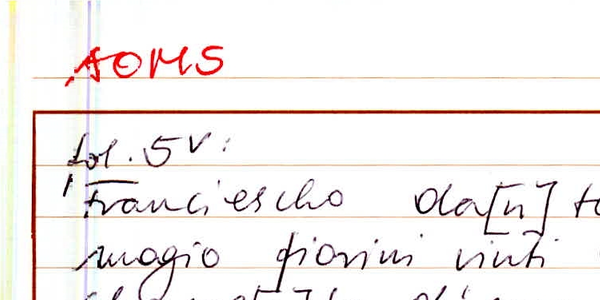 AOMS
fol. 5v:
Franciescho da[n]
magio fiorini vinti